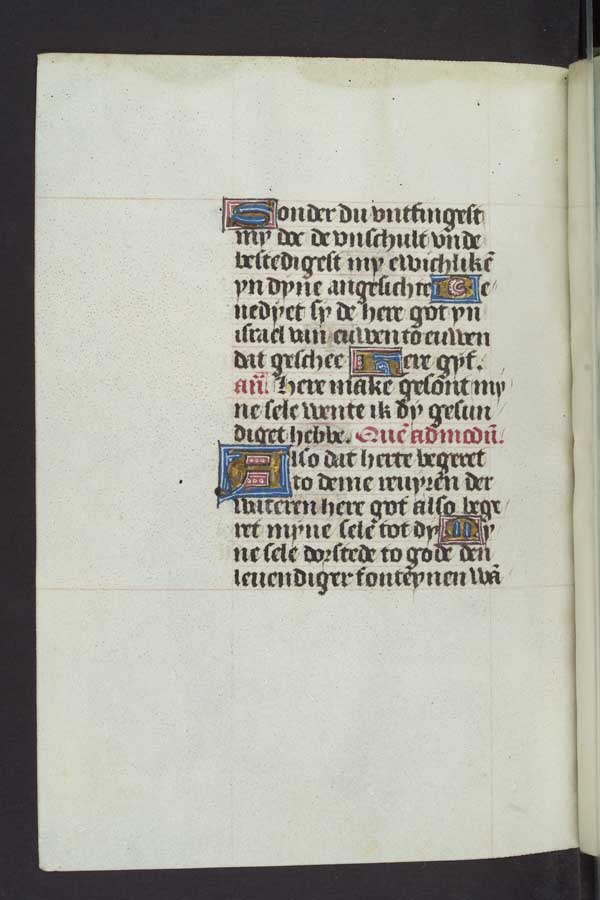 Sonder du vntfingest
my doe de vnschult vnde
bestedigest my ewichlikē
yn dyne angesichte Ge
nedyet sy de here got yn
israel van euwen to euwen
dat geschee Here gyf.
añ. Here make gesont my
ne sele wente ik dy gesun
diget hebbe. Quēadmodū.
Also dat herte begeret
to deme reuyren der
wateren here got also bege
ret myne sele tot dy My
ne sele dorstede to gode den
leuendiger fonteynen wā